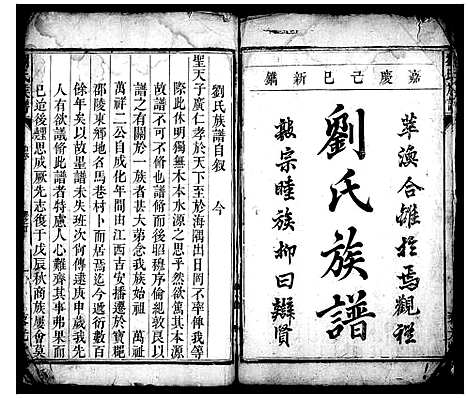 嘉慶己巳新鐫
萃渙合雝於焉觀程
劉氏族譜
敦宗睦族抑曰辯賢
劉氏族譜自叙 今
聖天子廣仁孝於天下至於海隅出日罔不率俾我等
際此休明獨無木本水源之思乎然欲篤其本源
譜不可不修也譜修而後昭穆序倫紀敦良以
譜之有關於一族者甚大弟念我族始祖 萬祉
萬祥二公自成化年間由江西吉安播遷於寶慶
邵陵東鄉地名馬巷村卜而居焉迄今瓞衍數百
餘年矣以故墨譜未失班次尚傳逮庚申歲我先
人有欲議修此譜者特慮人心難齊其事弗果而
已迨後趕思成厥先志復于戊辰秋商族屢會莫